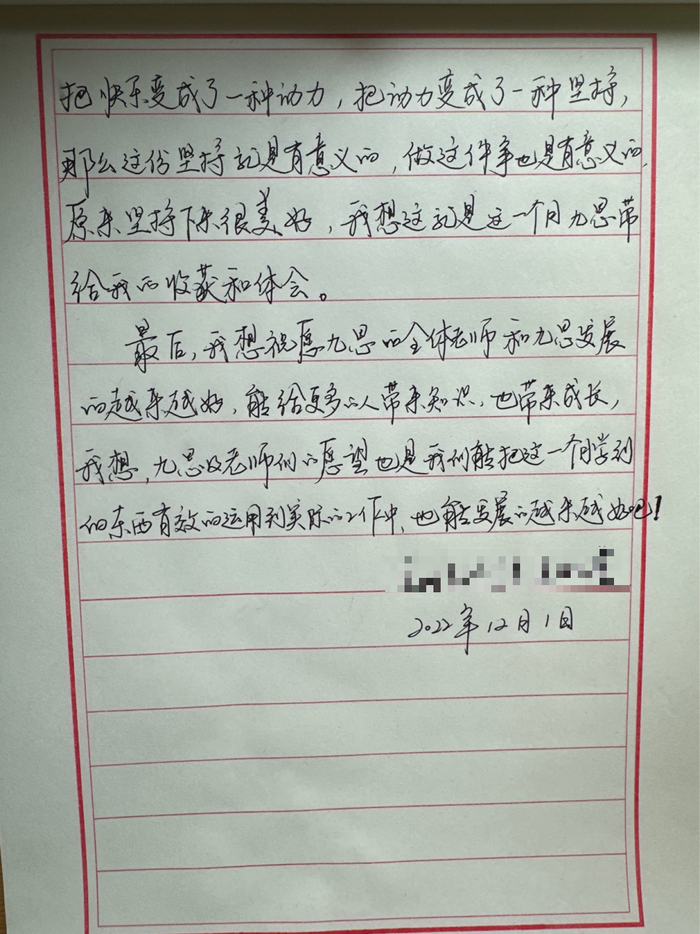 把快乐变成了一种动力，把动力变成了一种坚持，
那么这份坚持就是有意义的，做这件事也是有意义的，
原来坚持下来很美好，我想这就是这一个月九思带
给我的收获和体会。
最后，我想祝愿九思的全体老师和九思发展
的越来越好，能给更多的人带来知识，也带来成长，
我想，九思及老师们的愿望也是我们能把这一个月学到
的东西有效的运用到实际的工作中，也能发展的越来越好吧！
2022年12月1日